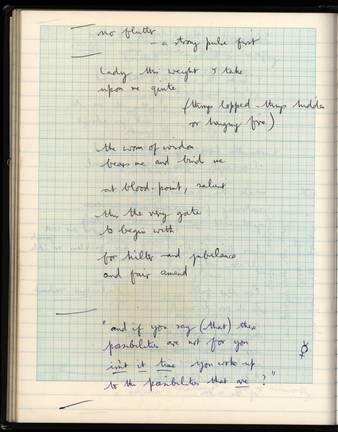 no flutter
– a strong pulse first
Lady this weight I take
upon me quite
(things lopped things hidden
or hanging fire)
the worm of wisdom
bears me and bids me
at blood-point, salute
this the very gate
to begin with
for hilts and jubilance
and fair amend
"and if you say (that) these
possibilities are not for you
isn't it time you woke up
to the possibilities that are?"